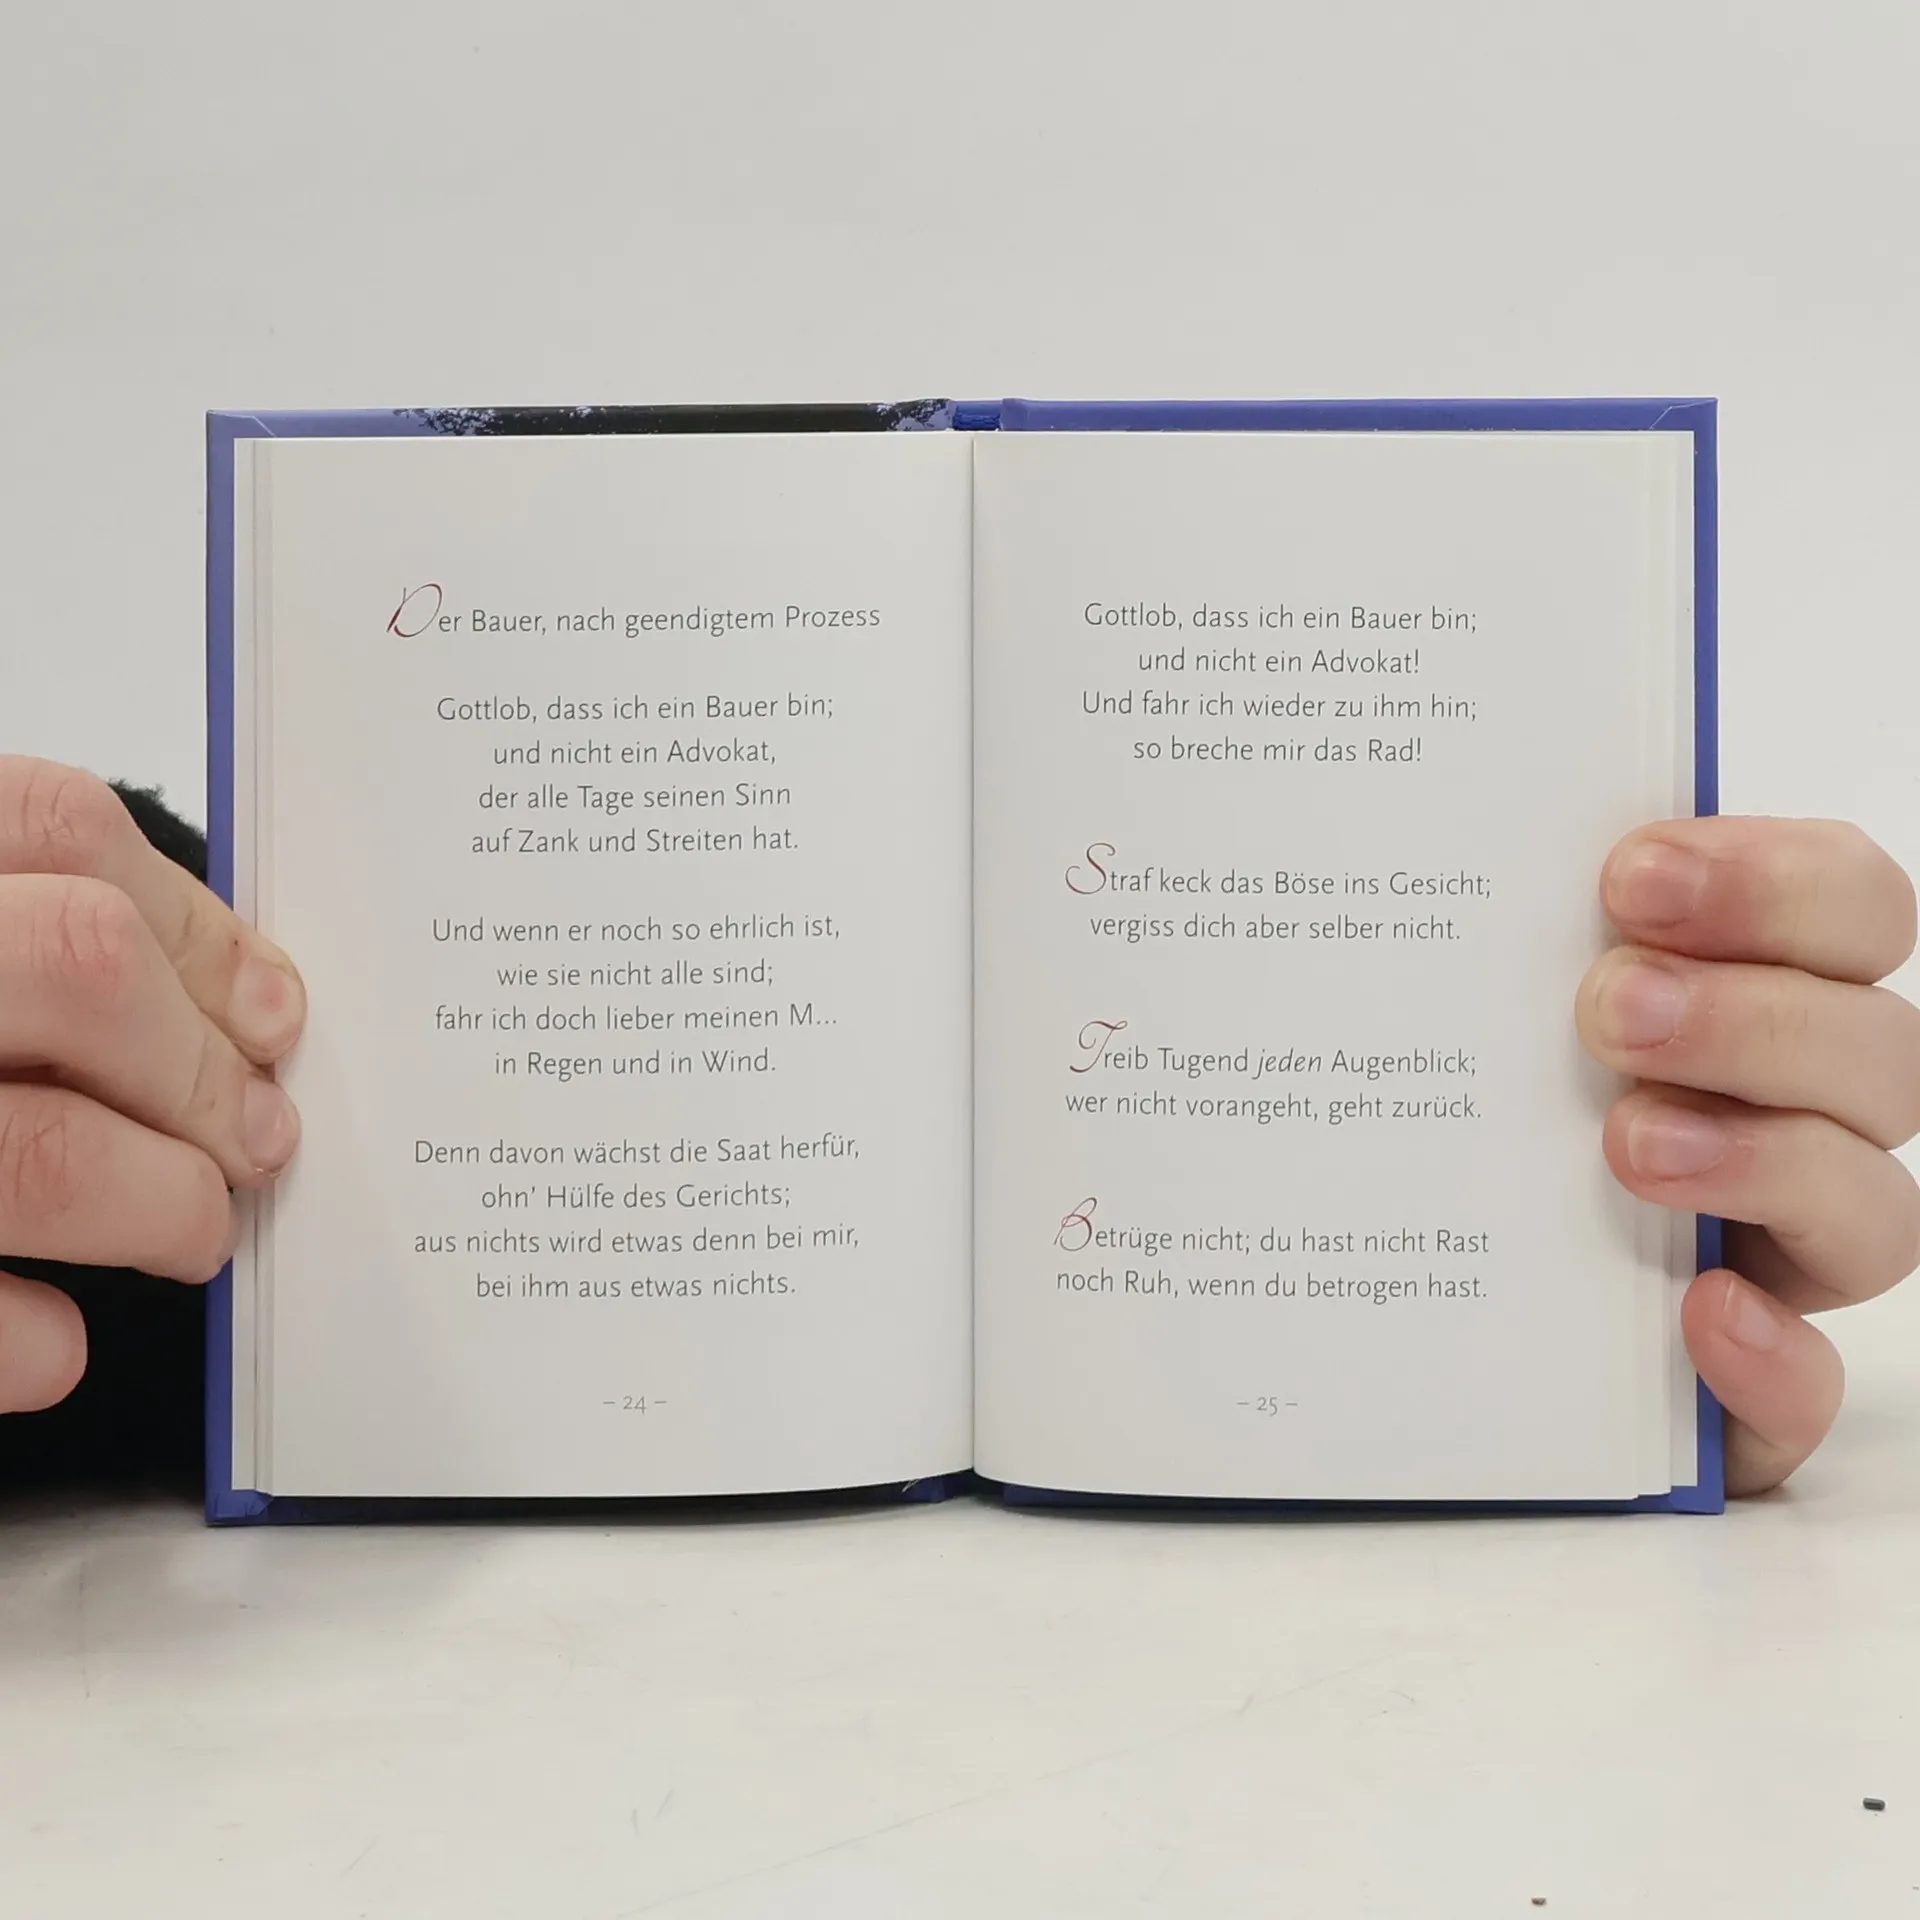 Der Bauer, nach geendigtem Prozess
Gottlob, dass ich ein Bauer bin;
und nicht ein Advokat,
der alle Tage seinen Sinn
auf Zank und Streiten hat.
Und wenn er noch so ehrlich ist,
wie sie nicht alle sind;
fahr ich doch lieber meinen M...
in Regen und in Wind.
Denn davon wächst die Saat herfür,
ohn' Hülfe des Gerichts;
aus nichts wird etwas denn bei mir,
bei ihm aus etwas nichts.
– 24 –
Gottlob, dass ich ein Bauer bin;
und nicht ein Advokat!
Und fahr ich wieder zu ihm hin;
so breche mir das Rad!
Straf keck das Böse ins Gesicht;
vergiss dich aber selber nicht.
Treib Tugend jeden Augenblick;
wer nicht vorangeht, geht zurück.
Betrüge nicht; du hast nicht Rast
noch Ruh, wenn du betrogen hast.
– 25 –